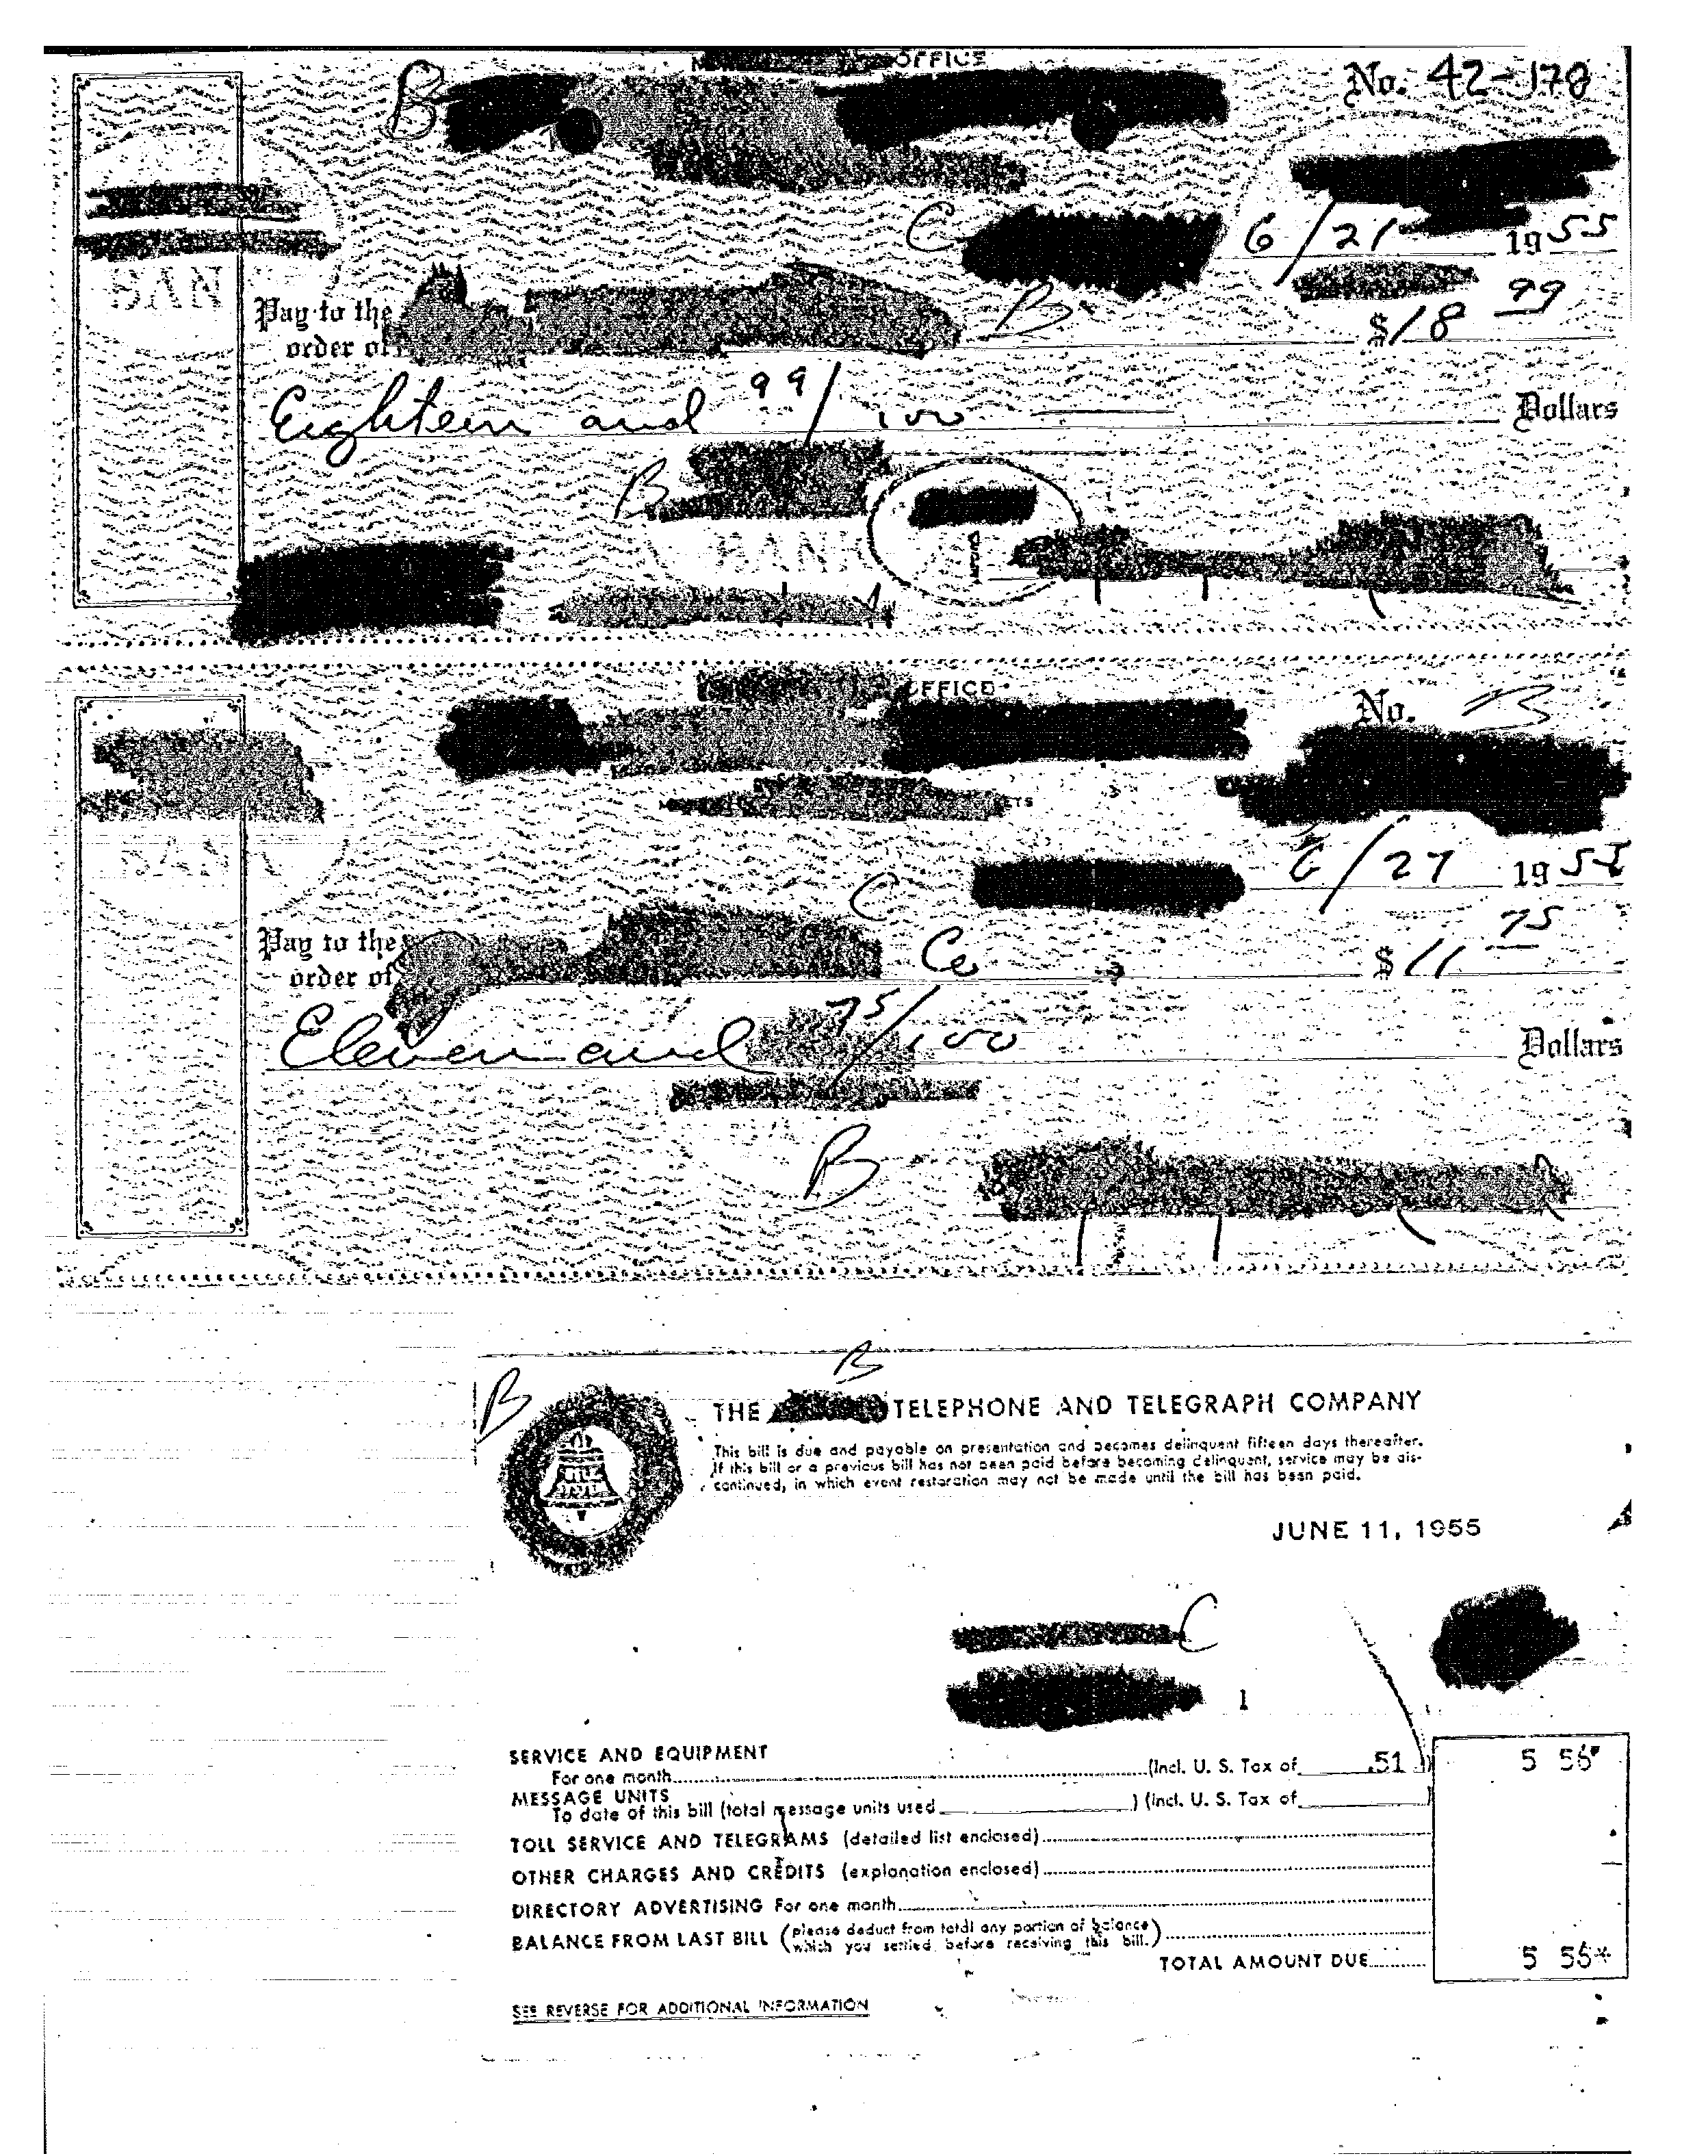 OFFICE
B
No. 42-178
C
6/21 1955
BAN
Pay to the
order of
B
$18 99
Eighteen and 99/100
Dollars
B
BANK
OFFICE
No. B
C
6/27 1955
Pay to the
order of
Co
$11 75
Eleven and 75/100
Dollars
B
B
B
THE TELEPHONE AND TELEGRAPH COMPANY
This bill is due and payable on presentation and becomes delinquent fifteen days thereafter.
If this bill or a previous bill has not been paid before becoming delinquent, service may be dis-
continued, in which event restoration may not be made until the bill has been paid.
JUNE 11, 1955
C
1
SERVICE AND EQUIPMENT
For one month (Incl. U. S. Tax of .51 ) 5 56
MESSAGE UNITS
To date of this bill (total message units used ) (Incl. U. S. Tax of )
TOLL SERVICE AND TELEGRAMS (detailed list enclosed)
OTHER CHARGES AND CREDITS (explanation enclosed)
DIRECTORY ADVERTISING For one month
BALANCE FROM LAST BILL (please deduct from total any portion of balance
which you settled before receiving this bill.)
TOTAL AMOUNT DUE 5 56*
SEE REVERSE FOR ADDITIONAL INFORMATION